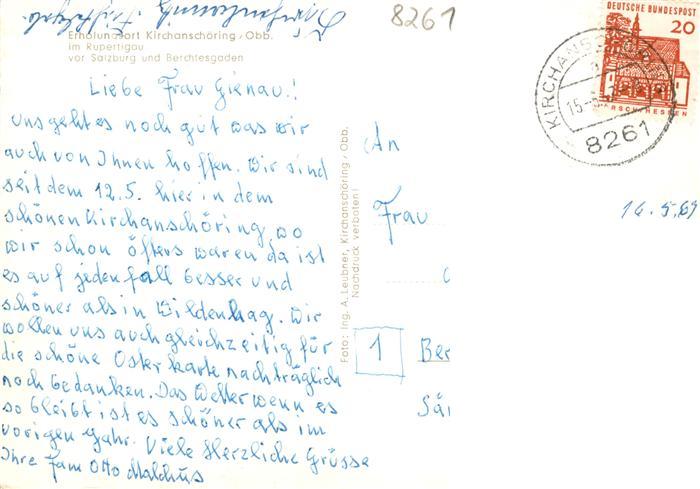 8261
Erholungsort Kirchanschöring/Obb.
im Rupertigau
vor Salzburg und Berchtesgaden
Liebe Frau Gienau.!
uns geht es noch gut was wir
auch von Ihnen hoffen. Wir sind
seit dem 12.5. hier in dem
schönen Kirchanschöring wo
wir schon öfters waren da ist
es auf jeden fall besser und
schöner als in Wildenhag. Wir
wollen uns auch gleichzeitig für
die schöne Osterkarte nachträglich
noch bedanken. Das Wetter wenn es
so bleibt ist es schöner als im
vorigen Jahr. Viele Herzliche Grüsse
Ihre Fam Otto Malchus
Foto: Ing. A. Leubner, Kirchanschöring/Obb.
Nachdruck verboten!
DEUTSCHE BUNDESPOST
20
8261
16.5.69
An
Frau
1 Ber